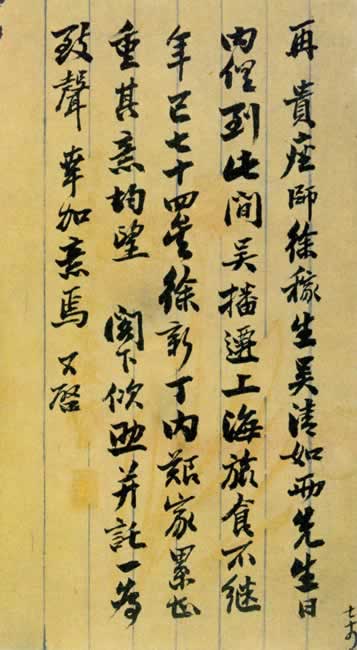 再 貴座師徐稼生吳清如兩先生日
內徑到此間吳播遷上海旅食不繼
年已七十四矣徐新丁內艱家累甚
重其意均望 閣下佽助并託一為
致聲 幸加意焉 又啓